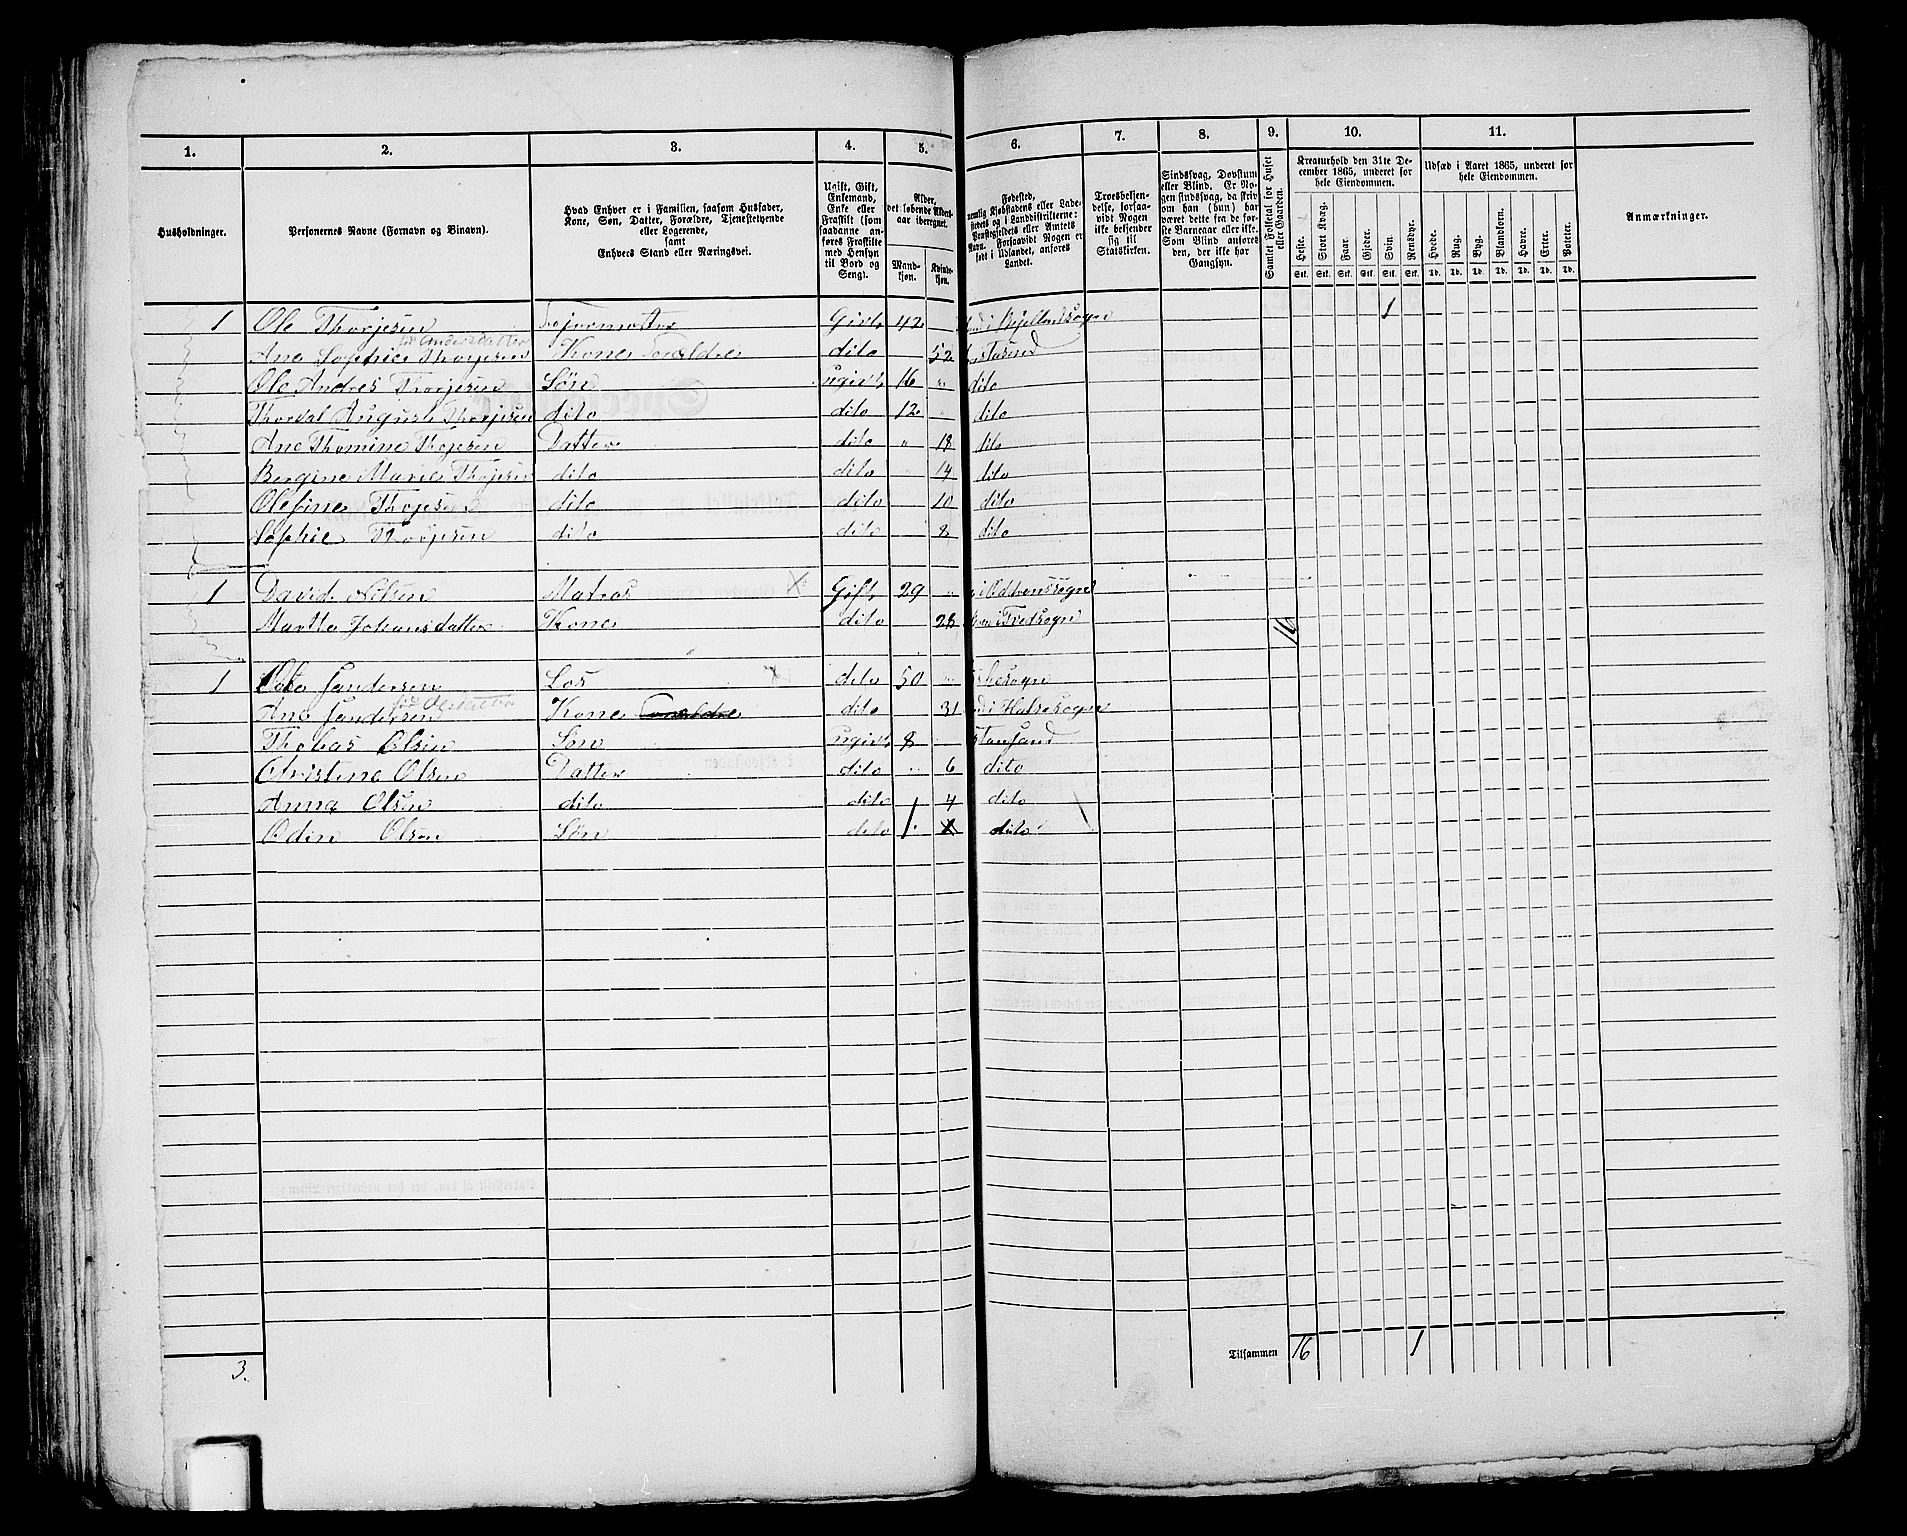 1. 2. 3. 4. 5. 6. 7. 8. 9. 10. 11.
Husholdninger.
Personernes Navne (Fornavn og Binavn).
Hvad Enhver er i Familien, saasom Husfader,
Kone, Søn, Datter, Forældre, Tjenestetyende
eller Logerende,
samt
Enhvers Stand eller Næringsvei.
Ugift, Gift,
Enkemand,
Enke eller
Fraskilt (som
saadanne an-
føres Fraskilte
med Hensyn
til Bord og
Seng).
Alder,
det løbende Alders-
aar iberegnet.
Mand-
kjøn.
Kvinde-
kjøn.
Fødested,
Landet.
Troesbekjen-
delse, forsaa-
vidt Nogen
ikke bekjender
sig til
Statskirken.
Sindssvag, Døvstum
eller Blind. Er No-
gen sindssvag, da skriv
om han (hun) har
været dette fra de før-
ste Barneaar eller ikke.
Som Blind anføres
den, der ikke har
Gangsyn.
Samlet Folketal for Huset
eller Gaarden.
Kreaturhold den 31te De-
cember 1865, underet for
hele Eiendommen.
Heste. Stort Kvæg. Faar. Gjeder. Svin. Rensdyr.
Stk. Stk. Stk. Stk. Stk. Stk.
Udsæd i Aaret 1865, underet for
hele Eiendommen.
Hvede. Rug. Byg. Blandkorn. Havre. Erter. Poteter.
Td. Td. Td. Td. Td. Td. Td.
Anmærkninger.
1 Ole Thorjesen Givt 42 Bjellandsogn 1
født Andersdatter
Ane Sophie Thorjesen Kone Forældre dito 52
Ole Andres Thorjesen Søn ugivt 16 " dito
Thorval August Thorjesen dito dito 12 " dito
Ane Thomine Thojesen Datter dito " 18 dito
Bergine Marie Thojesen dito dito " 14 dito
Olefine Thojesen dito dito 10 dito
Sophie Thorjesen dito dito 8 dito
1 David Nilsen Matros X Gift 29 " i Oddernessogn
Martha Johansdatter Kone dito 28 16
1 Sandersen Los X dito 50 "
Ane Sandersen Kone Forældre dito 31 Halsesogn
Thobias Olsen Søn ugivt 8
Christine Olsen Datter dito " 6 dito
Anna Olsen dito dito 4 dito
Odin Olsen Søn dito 1 dito
3.
Tilsammen 16 1